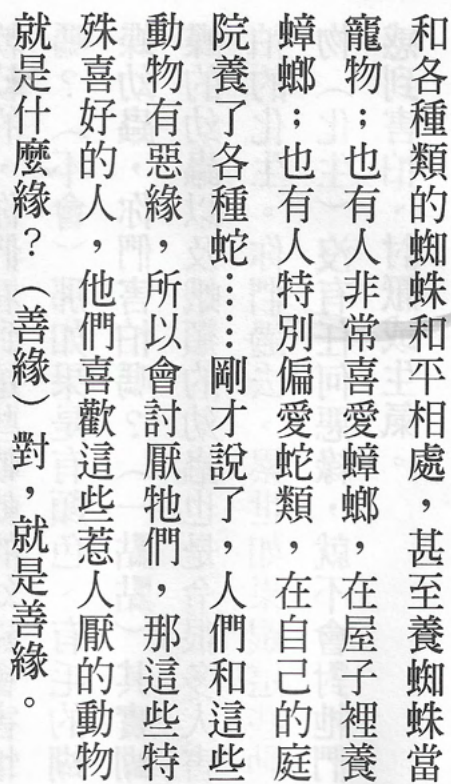 和各種類的蜘蛛和平相處，甚至養蜘蛛當
寵物；也有人非常喜愛蟑螂，在屋子裡養
蟑螂；也有人特別偏愛蛇類，在自己的庭
院養了各種蛇……剛才說了，人們和這些
動物有惡緣，所以會討厭牠們，那這些特
殊喜好的人，他們喜歡這些惹人厭的動物
就是什麼緣？（善緣）對，就是善緣。